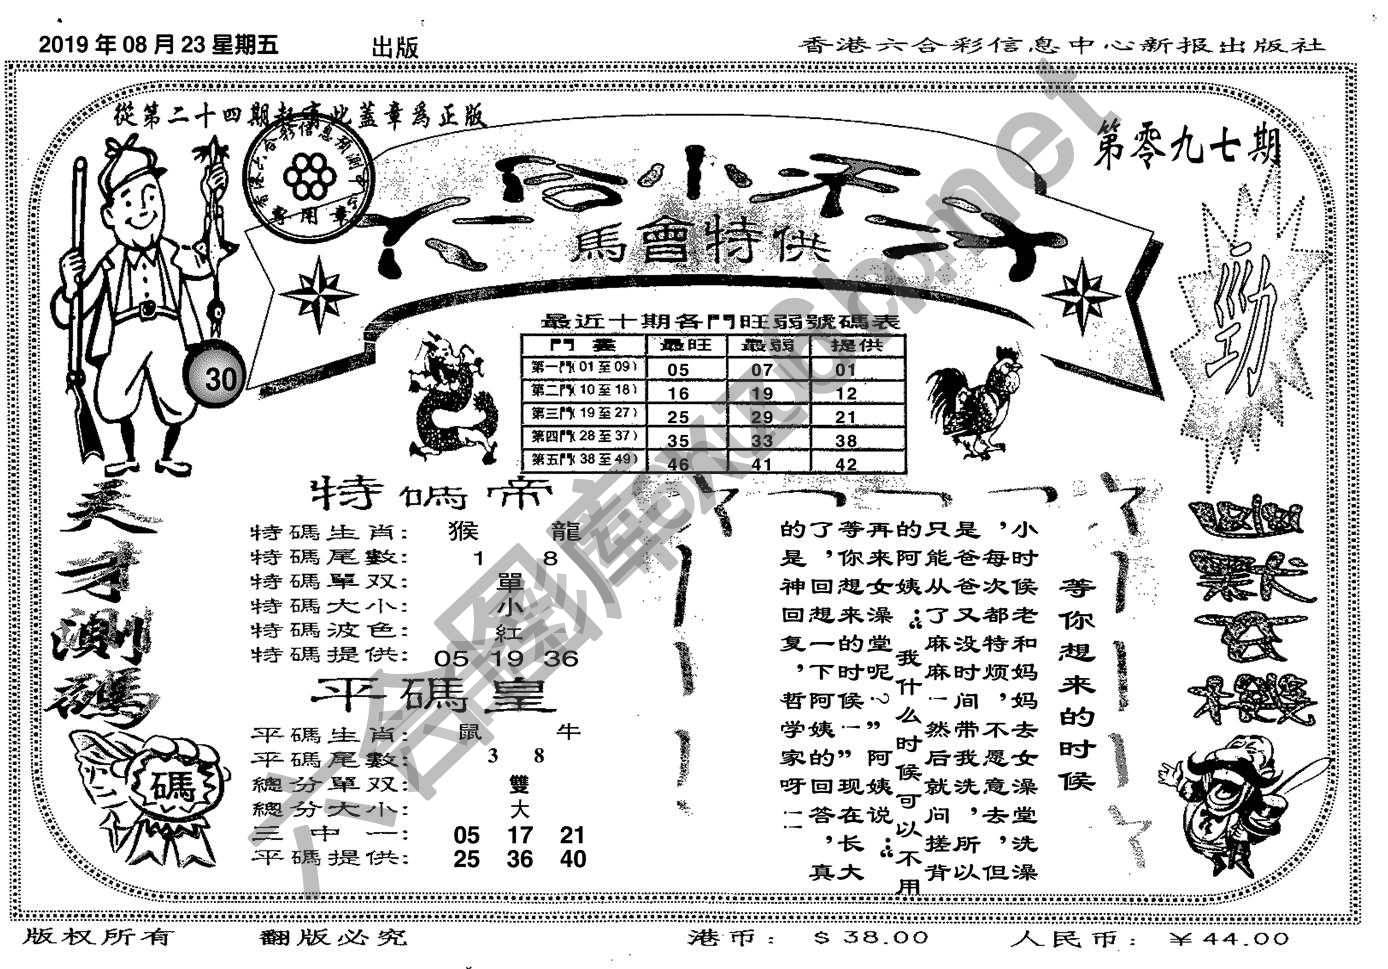 2019 年 08 月 23 星期五
出版
香港六合彩信息中心新报出版社
從第二十四期起寄此蓋章爲正版
香港六合彩信息预测中心
專用章
第零九七期
六合小子
馬會特供
勁
30
最近十期各門旺弱號碼表
門 最旺 最弱 提供
第一門(01 至 09) 05 07 01
第二門(10 至 18) 16 19 12
第三門(19 至 27) 25 29 21
第四門(28 至 37) 35 33 38
第五門(38 至 49) 46 41 42
天才測碼
碼
特碼帝
特碼生肖: 猴 龍
特碼尾數: 1 8
特碼單双: 單
特碼大小: 小
特碼波色: 紅
特碼提供: 05 19 36
平碼皇
平碼生肖: 鼠 牛
平碼尾數: 3 8
總分單双: 雙
總分大小: 大
三中一: 05 17 21
平碼提供: 25 36 40
等你想来的时候
小时候老和妈妈去女澡堂洗澡
，每次都特烦，不愿意去，但
是爸爸又没时间带我洗，所以
只能从了麻麻一然后就问搓背
的阿姨：“我什么时候可以不用
再来女澡堂呢？”阿姨说：“
等你想来的时候一”现在长大
了，回想一下阿姨的回答，真
的是神回复，哲学家呀！！
六合图库
版权所有
翻版必究
港币： $ 38.00
人民币： ￥44.00